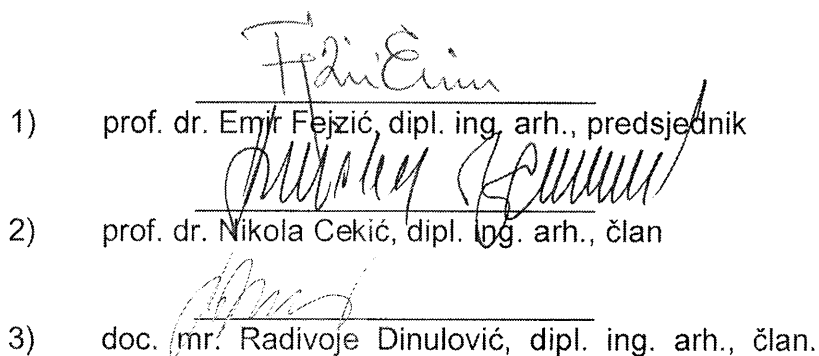 1) prof. dr. Emir Fejzić, dipl. ing. arh., predsjednik
2) prof. dr. Nikola Cekić, dipl. ing. arh., član
3) doc. mr. Radivoje Dinulović, dipl. ing. arh., član.